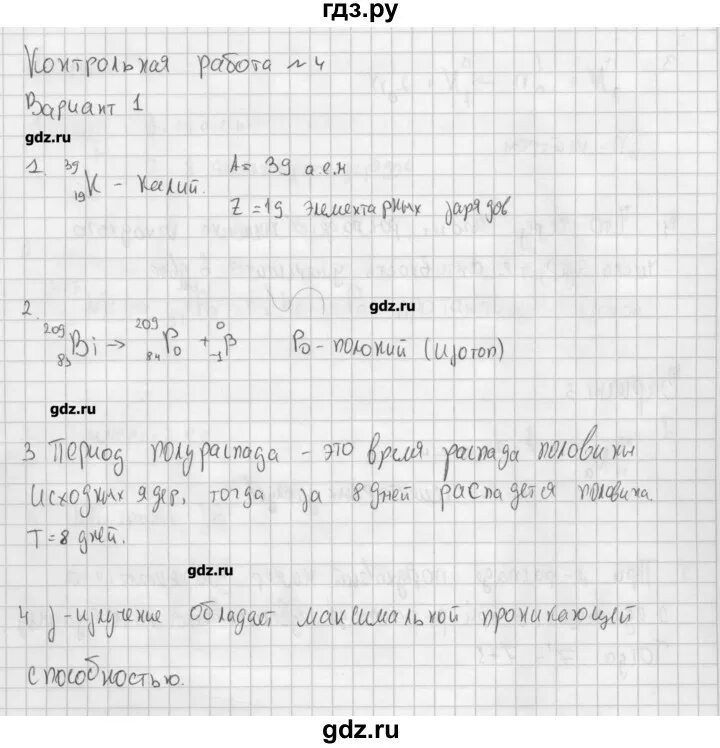 гдз.ру
Контрольная работа №4
Вариант 1
gdz.ru
1. ³⁹₁₉K – калий. A = 39 а.е.м
Z = 19 элементарных зарядов
gdz.ru
2. ²⁰⁹₈₃Bi → ²⁰⁹₈₄Po + ⁰₋₁β Po – полоний (изотоп)
gdz.ru
3 Период полураспада – это время распада половины
исходных ядер, тогда за 8 дней распадется половина.
T = 8 дней.
gdz.ru
4 γ – излучение обладает максимальной проникающей
способностью.
gdz.ru